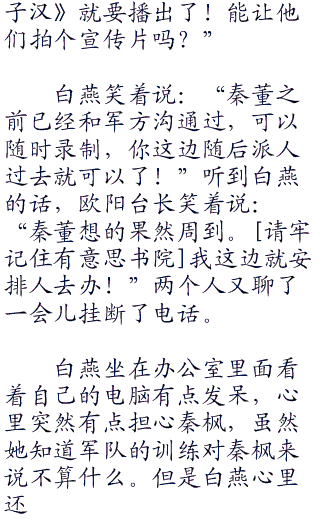 子汉》就要播出了！能让他
们拍个宣传片吗？”
白燕笑着说：“秦董之
前已经和军方沟通过，可以
随时录制，你这边随后派人
过去就可以了！”听到白燕
的话，欧阳台长笑着说：
“秦董想的果然周到。[请牢
记住有意思书院]我这边就安
排人去办！”两个人又聊了
一会儿挂断了电话。
白燕坐在办公室里面看
着自己的电脑有点发呆，心
里突然有点担心秦枫，虽然
她知道军队的训练对秦枫来
说不算什么。但是白燕心里
还